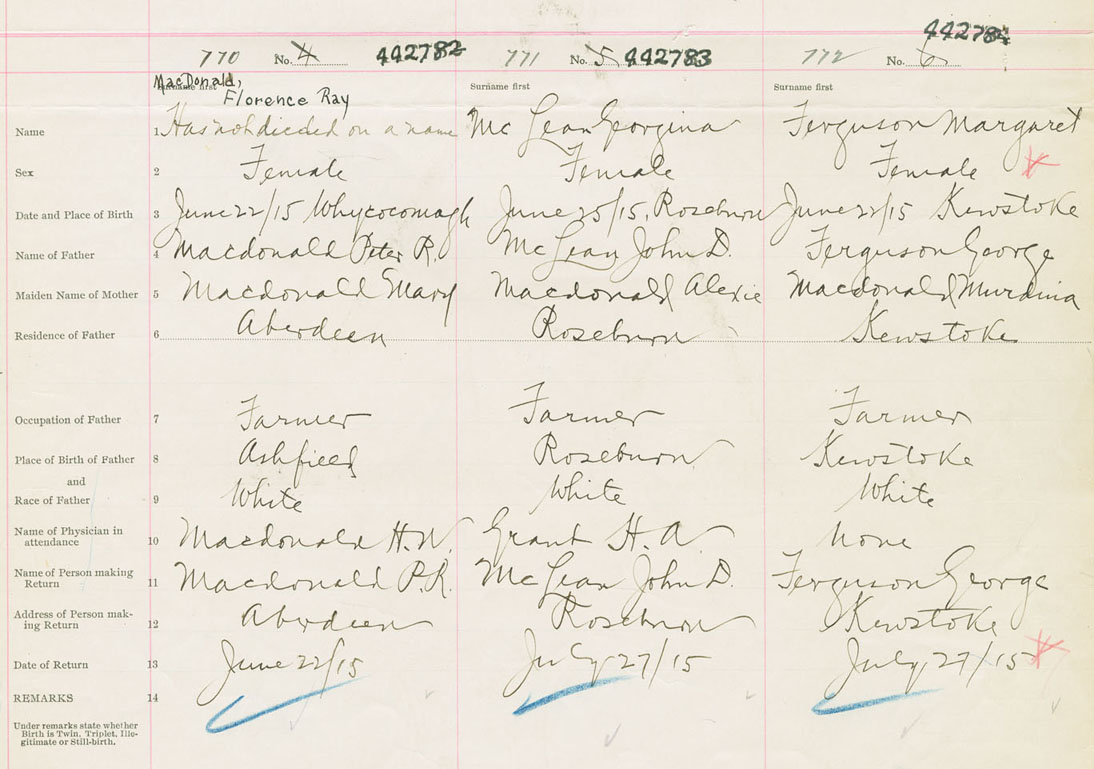 442784
770 No. 4 442782 771 No. 5 442783 772 No. 6
Surname first Surname first Surname first
MacDonald,
Florence Ray
Name 1 Has not dicided on a name Mc Lean Georgina Ferguson Margaret
Sex 2 Female Female Female
Date and Place of Birth 3 June 22/15 Whycocomagh June 25/15, Roseburn June 22/15 Kewstoke
Name of Father 4 Macdonald Peter R. McLean John D. Ferguson George
Maiden Name of Mother 5 Macdonald Mary Macdonald Alexie Macdonald Murdina
Residence of Father 6 Aberdeen Roseburn Kewstoke
Occupation of Father 7 Farmer Farmer Farmer
Place of Birth of Father 8 Ashfield Roseburn Kewstoke
and
Race of Father 9 White White White
Name of Physician in
attendance 10 Macdonald H.N. Grant H. A. None
Name of Person making
Return 11 Macdonald P.R. McLean John D. Ferguson George
Address of Person mak-
ing Return 12 Aberdeen Roseburn Kewstoke
Date of Return 13 June 22/15 July 27/15 July 27/15
REMARKS 14
Under remarks state whether
Birth is Twin, Triplet, Ille-
gitimate or Still-birth.